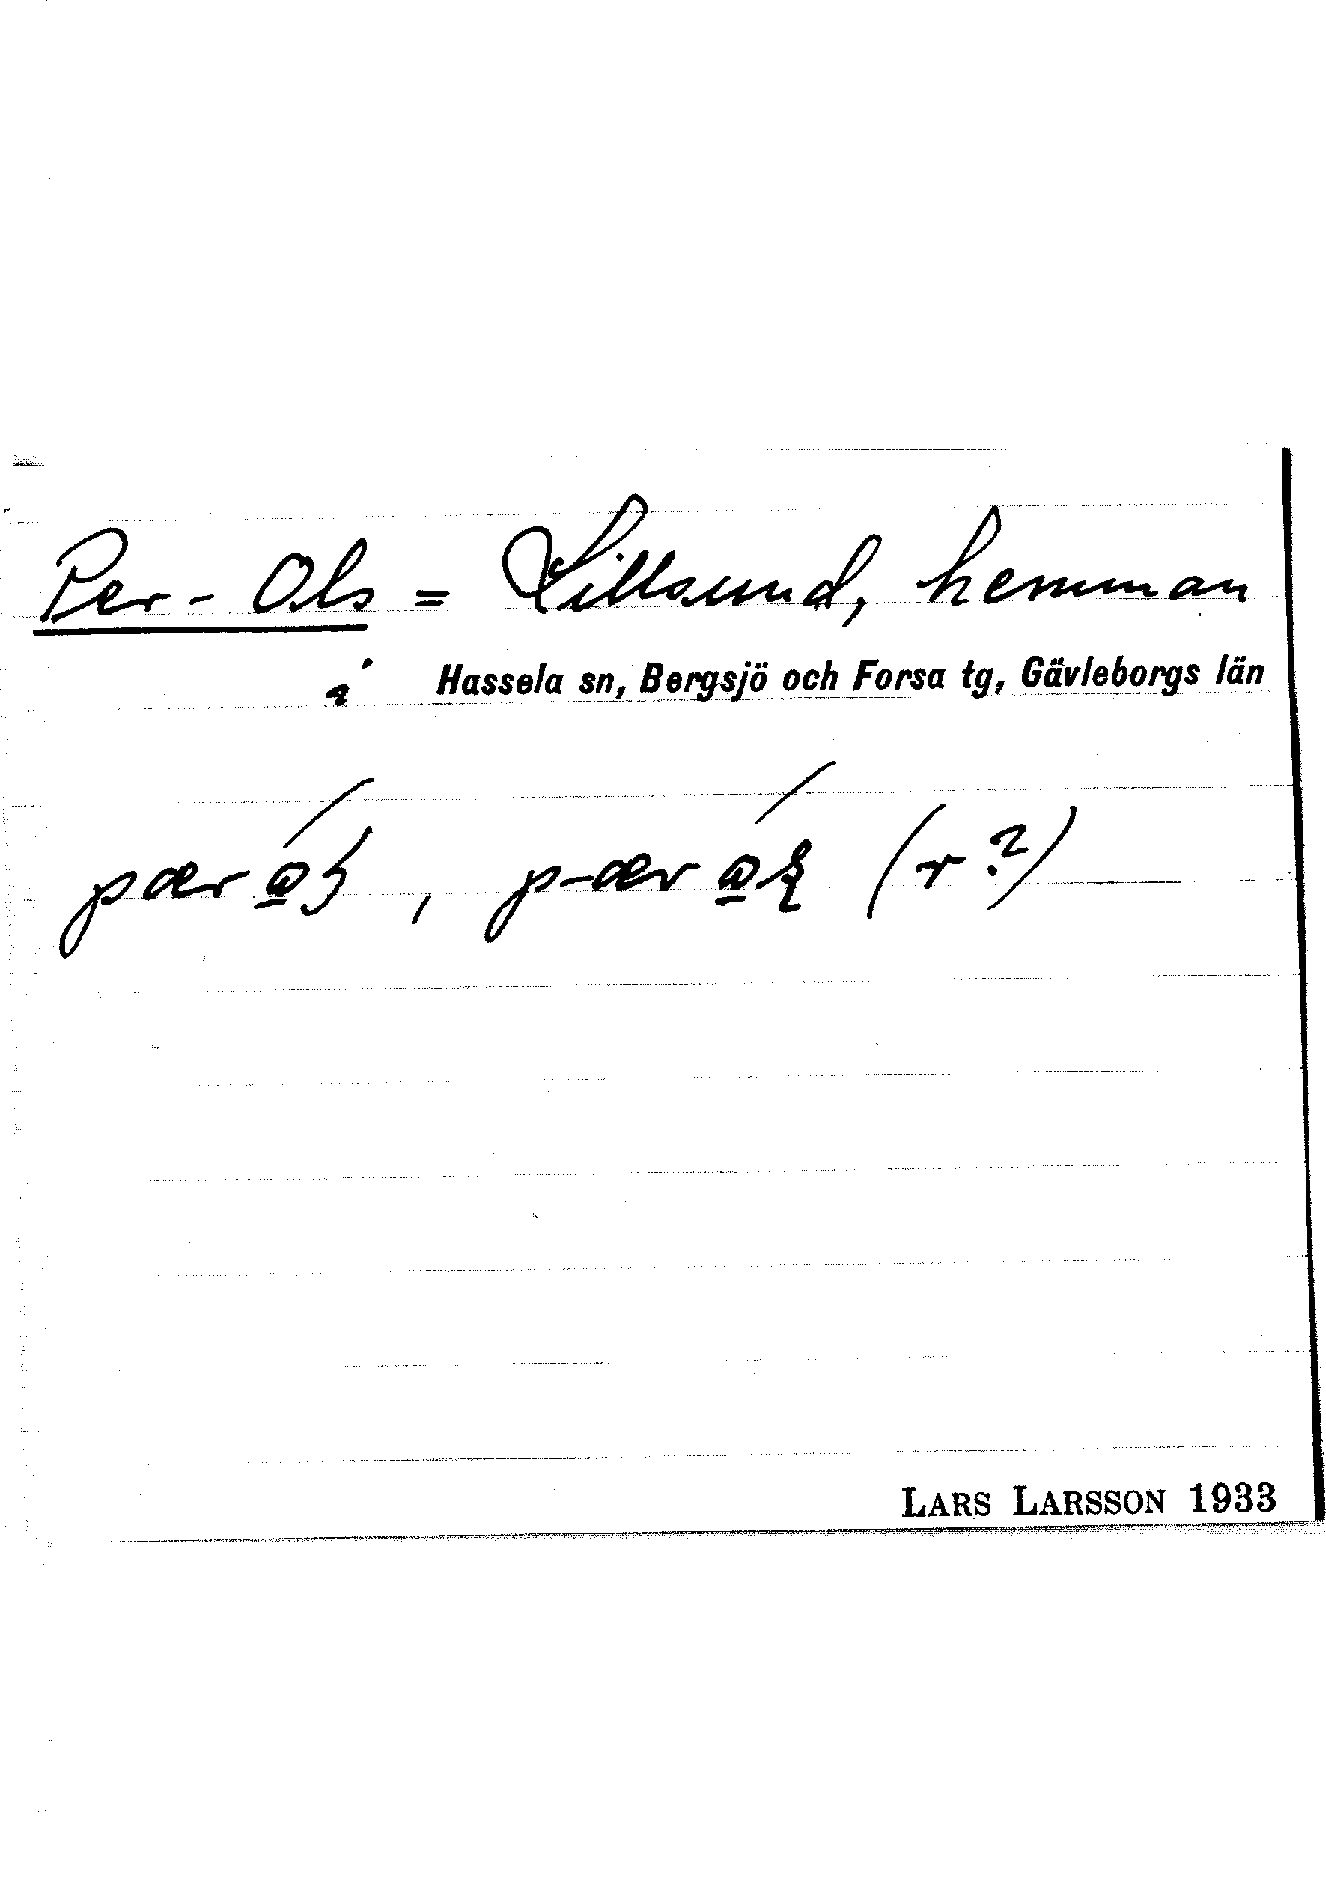 Per-Ols = Lillsund, hemman
i Hassela sn, Bergsjö och Forsa tg, Gävleborgs län
pær , p-ær (r?)
LARS LARSSON 1933